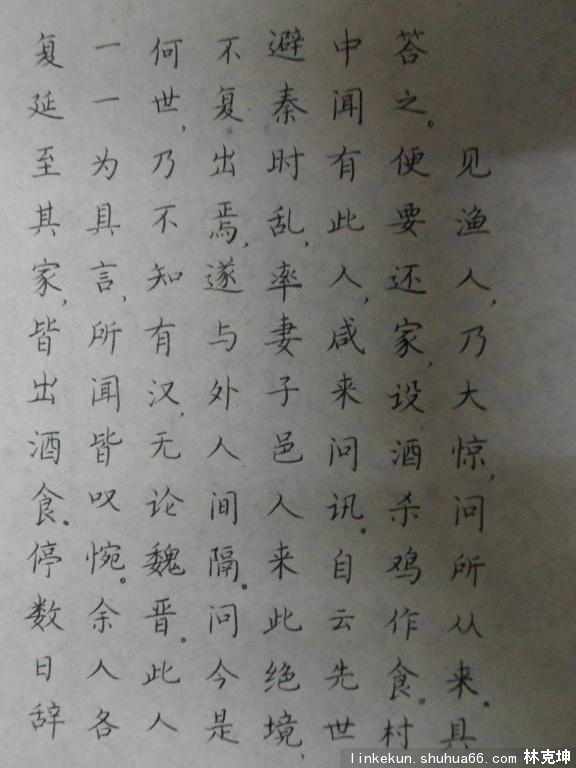 见渔人，乃大惊，问所从来。具
答之。便要还家，设酒杀鸡作食。村
中闻有此人，咸来问讯。自云先世
避秦时乱，率妻子邑人来此绝境，
不复出焉，遂与外人间隔。问今是
何世，乃不知有汉，无论魏晋。此人
一一为具言，所闻皆叹惋。余人各
复延至其家，皆出酒食。停数日辞
linkekun.shuhua66.com 林克坤